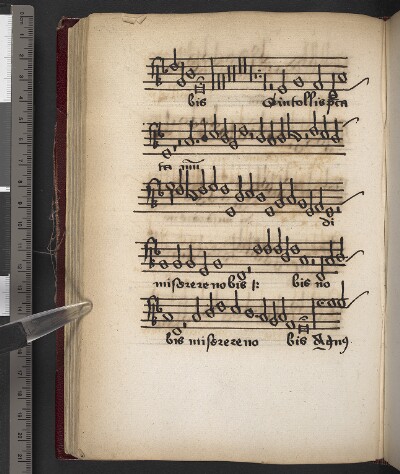 bis Qui tollis pcca
ta mu
di
miserere nobis bis no
bis miserere no bis Agnus